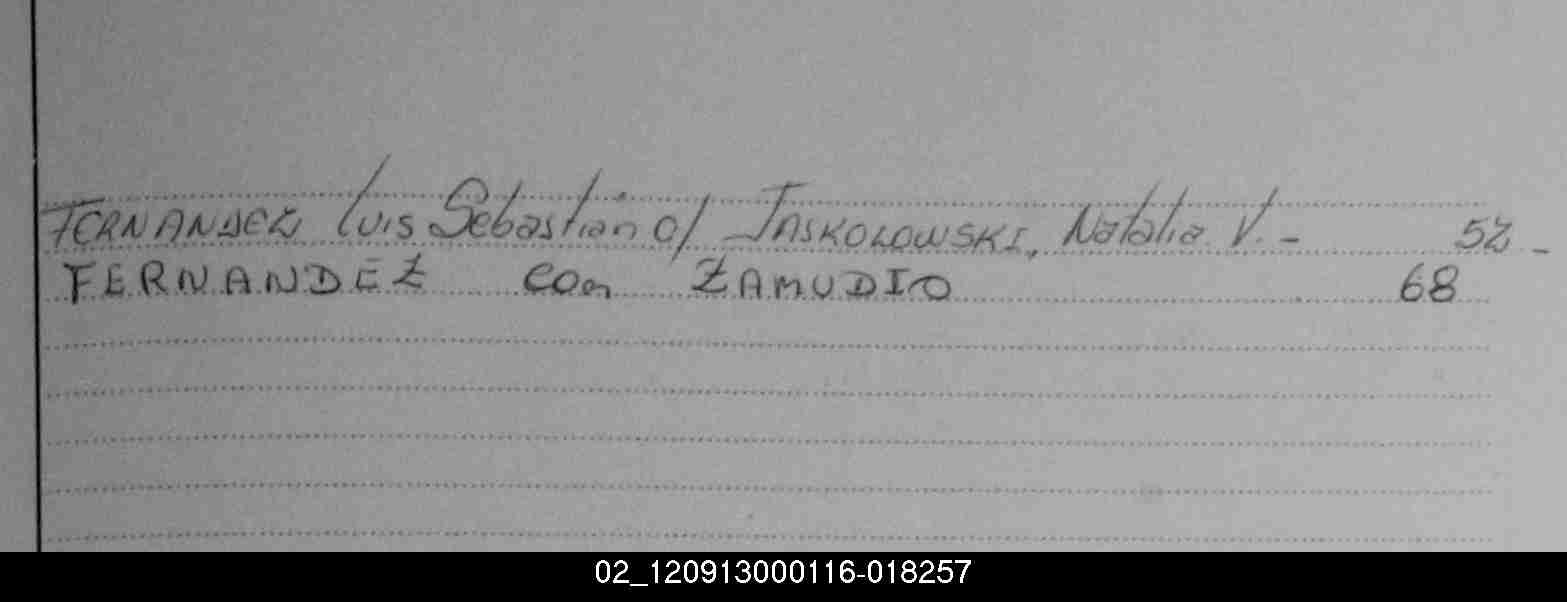 FERNANDEZ Luis Sebastián c/ JASKOLOWSKI, Natalia V. - 52 -
FERNANDEZ con ZAMUDIO 68
02_120913000116-018257